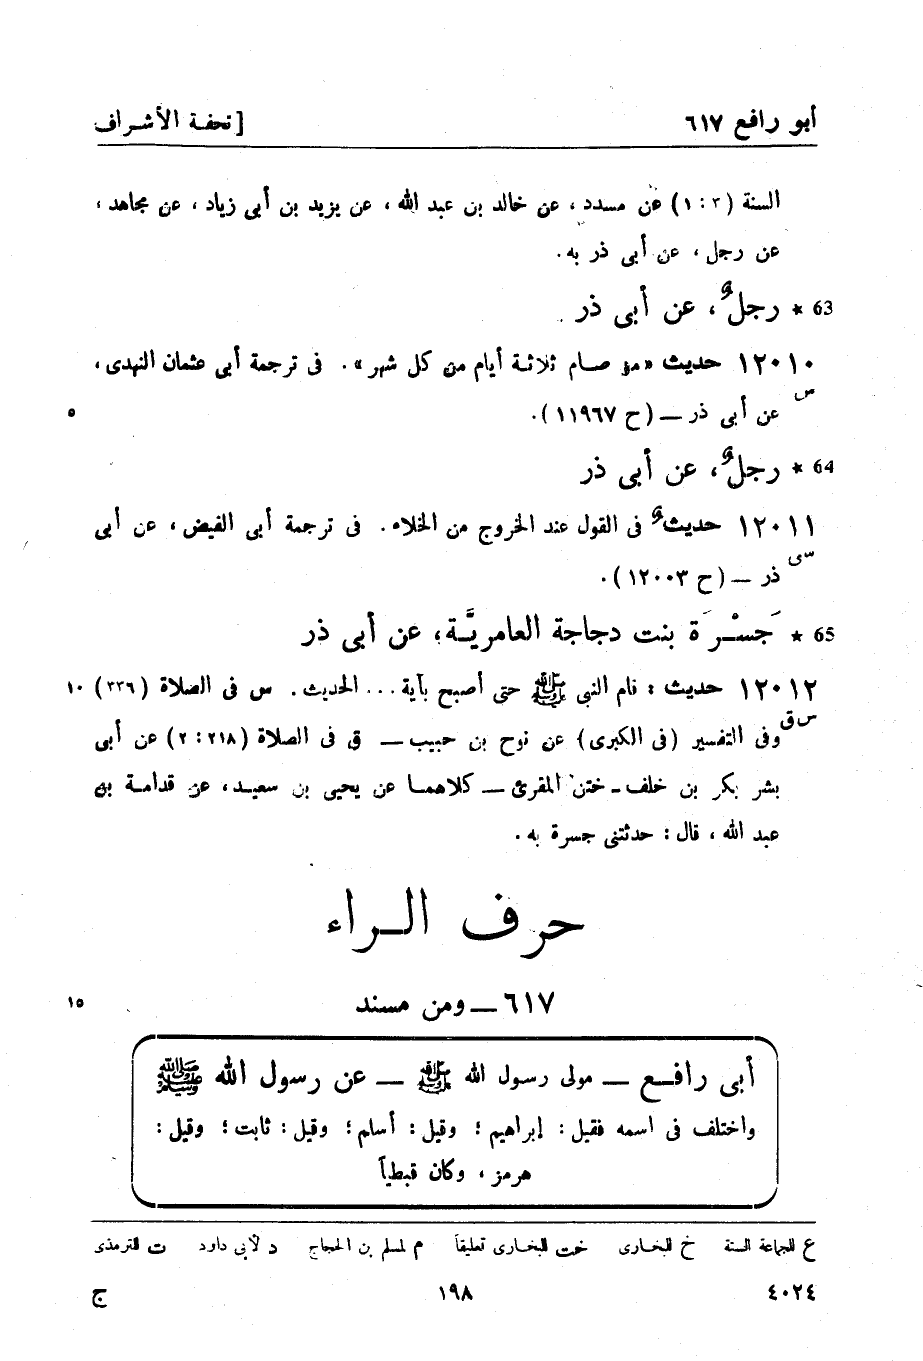 أبو رافع ٦١٧ [ تحفة الأشراف
السنة (٣ : ١) عن مسدد ، عن خالد بن عبد الله ، عن يزيد بن أبى زياد ، عن مجاهد ،
عن رجل ، عن أبى ذر به .
63 * رجلٌ ، عن أبى ذر
١٢٠١٠ حديث «من صام ثلاثة أيام من كل شهر» . فى ترجمة أبى عثمان النهدى ،
س عن أبى ذر ــ (ح ١١٩٦٧) . ٥
64 * رجلٌ ، عن أبى ذر
١٢٠١١ حديثٌ فى القول عند الخروج من الخلاء . فى ترجمة أبى الفيض ، عن أبى
سى ذر ــ (ح ١٢٠٠٣) .
65 * جَسْرَة بنت دجاجة العامريَّة ، عن أبى ذر
١٢٠١٢ حديث : قام النبى ﷺ حتى أصبح بآية ... الحديث . س فى الصلاة (٣٣٦) ١٠
س ق وفى التفسير (فى الكبرى) عن نوح بن حبيب ــ ق فى الصلاة (٢١٨ : ٢) عن أبى
بشر بكر بن خلف ـ ختن المقرئ ــ كلاهما عن يحيى بن سعيد ، عن قدامة بن
عبد الله ، قال : حدثتنى جسرة به .
حرف الراء
٦١٧ ــ ومن مسند ١٥
أبى رافع ــ مولى رسول الله ﷺ ــ عن رسول الله ﷺ
واختلف فى اسمه فقيل : إبراهيم ؛ وقيل : أسلم ؛ وقيل : ثابت ؛ وقيل :
هرمز ، وكان قبطياً
ع للجماعة الستة خ للبخارى خت للبخارى تعليقاً م لمسلم بن الحجاج د لأبى داود ت للترمذى
٤٠٢٤ ١٩٨ ج